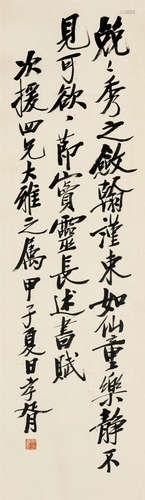 兢〻秀之斂翰謹束如仙童樂靜不
見可欲 節竇靈長述書賦
次援四兄大雅之屬 甲子夏日孝胥